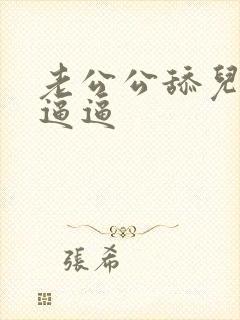 老公公舔兒
逼逼
張希